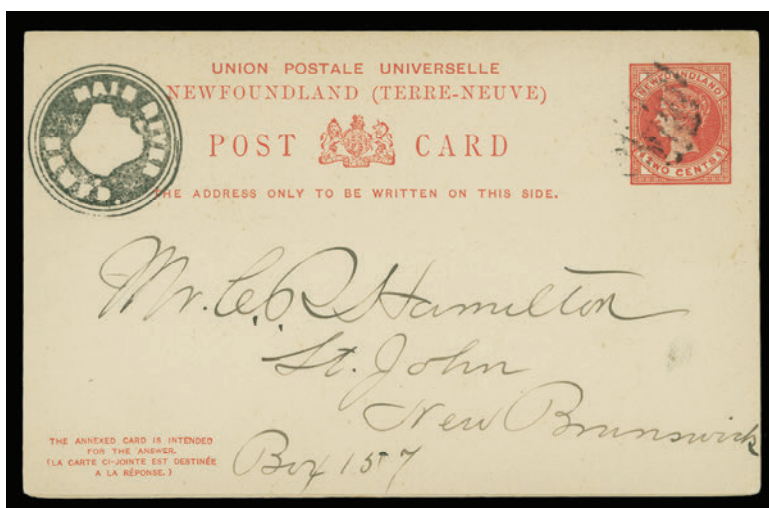 UNION POSTALE UNIVERSELLE
NEWFOUNDLAND (TERRE-NEUVE)
POST CARD
THE ADDRESS ONLY TO BE WRITTEN ON THIS SIDE.
NEWFOUNDLAND
TWO CENTS
MAIN RIVER
Mr. C. R. Hamilton
St. John
New Brunswick
Box 157
THE ANNEXED CARD IS INTENDED
FOR THE ANSWER.
(LA CARTE CI-JOINTE EST DESTINÉE
A LA RÉPONSE.)